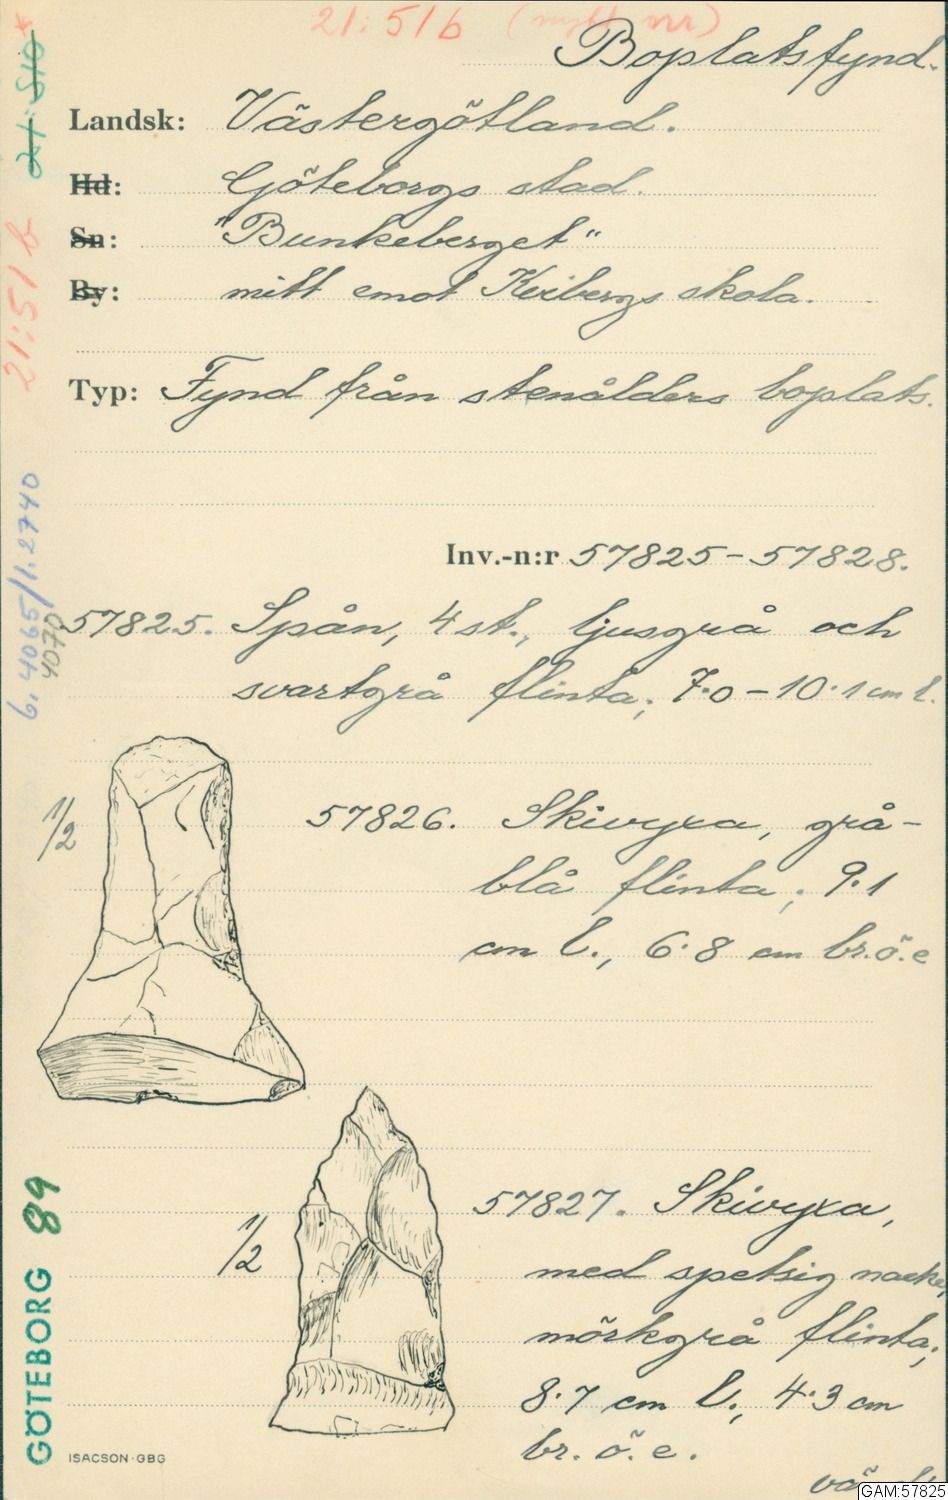 21:51b (nytt nr)
Boplatsfynd.
Landsk: Västergötland.
Hd: Göteborgs stad.
Sn: "Bunkeberget"
By: mitt emot Kvibergs skola.
Typ: Fynd från stenålders boplats.
Inv.-n:r 57825-57828.
57825. Spån, 4 st., ljusgrå och
svartgrå flinta; 7.0-10.1 cm l.
1/2
57826. Skivyxa, grå-
blå flinta; 9.1
cm l., 6.8 cm br.ö.e
1/2
57827. Skivyxa,
med spetsig nacke,
mörkgrå flinta;
8.7 cm l., 4.3 cm
br. ö. e.
21:51b
6.4065/1.2740
4070
GÖTEBORG 89
ISACSON·GBG
GAM:57825